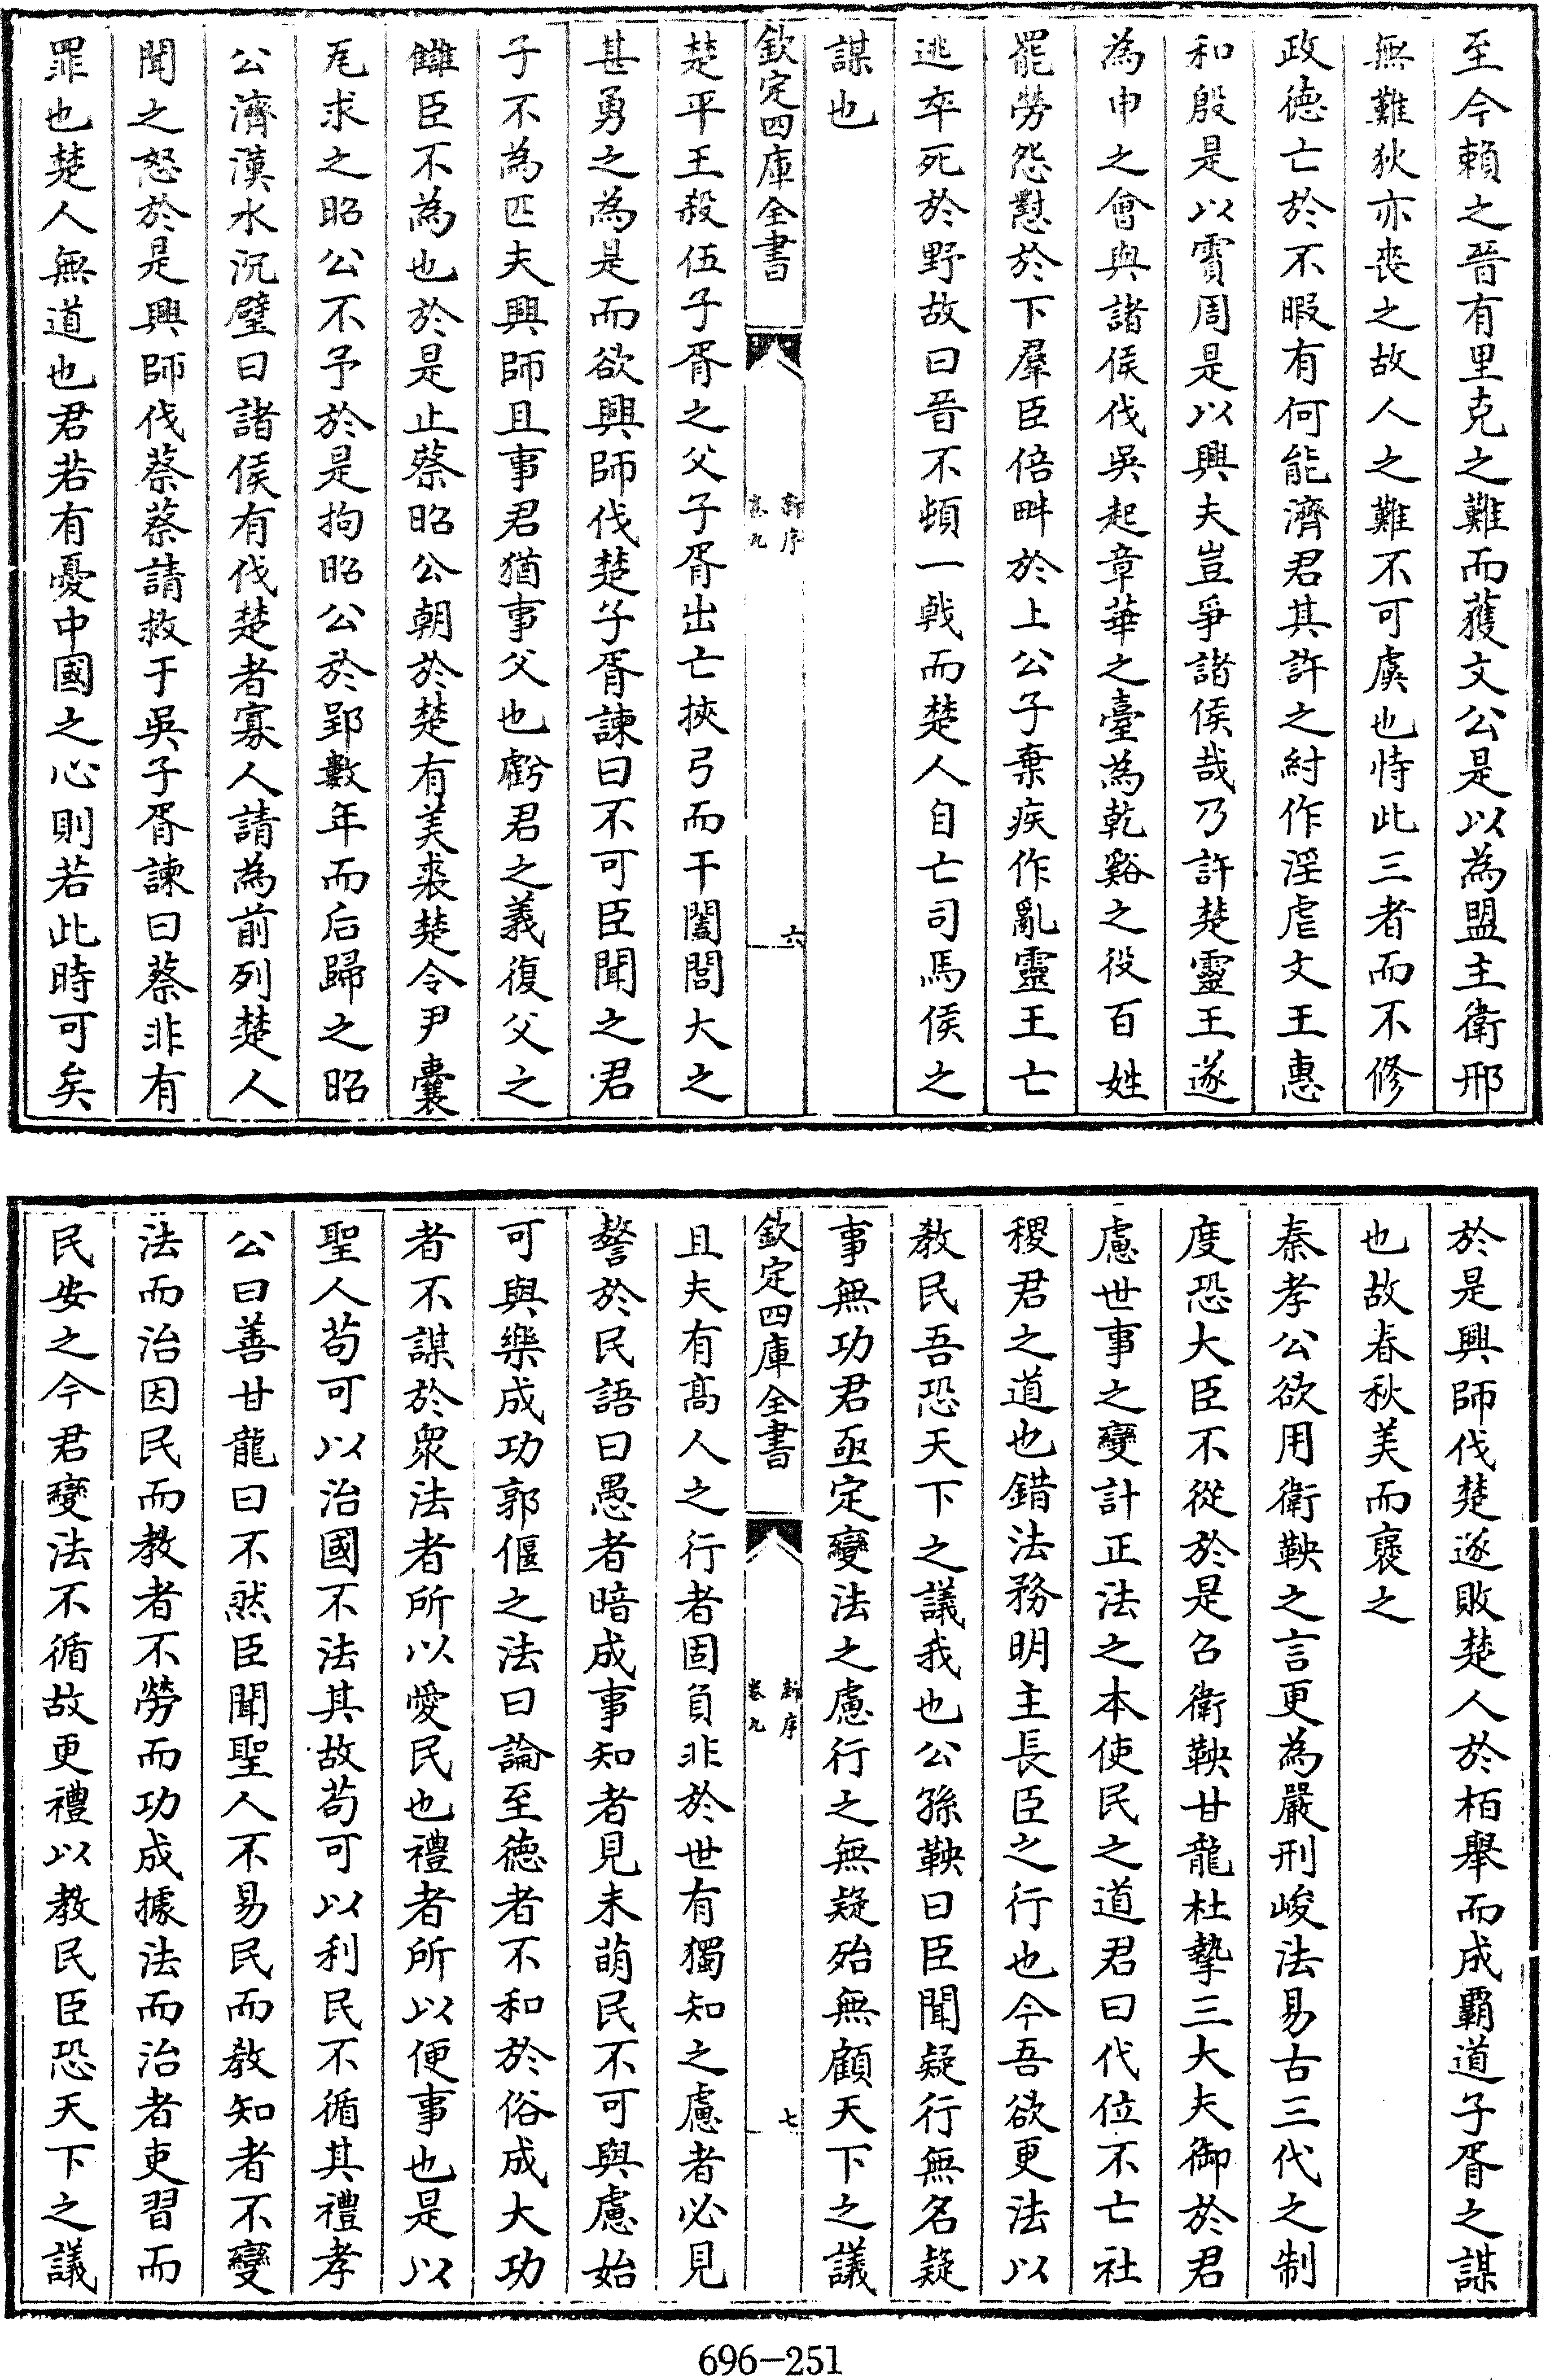 至今頼之晉有里克之難而獲文公是以為盟主衛邢
無難狄亦喪之故人之難不可虞也恃此三者而不修
政德亡於不暇有何能濟君其許之紂作淫虐文王惠
和殷是以霣周是以興夫豈爭諸侯哉乃許楚靈王遂
為申之會與諸侯伐吳起章華之臺為乾谿之役百姓
罷勞怨懟於下羣臣倍畔於上公子棄疾作亂靈王亡
逃卒死於野故曰晉不頓一戟而楚人自亡司馬侯之
謀也
欽定四庫全書
新序
卷九
六
楚平王殺伍子胥之父子胥出亡挾弓而干闔閭大之
甚勇之為是而欲興師伐楚子胥諫曰不可臣聞之君
子不為匹夫興師且事君猶事父也虧君之義復父之
讎臣不為也於是止蔡昭公朝於楚有美裘楚令尹囊
瓦求之昭公不予於是拘昭公於郢數年而后歸之昭
公濟漢水沉璧曰諸侯有伐楚者寡人請為前列楚人
聞之怒於是興師伐蔡蔡請救于吳子胥諫曰蔡非有
罪也楚人無道也君若有憂中國之心則若此時可矣
於是興師伐楚遂敗楚人於栢舉而成霸道子胥之謀
也故春秋美而襃之
秦孝公欲用衛鞅之言更為嚴刑峻法易古三代之制
度恐大臣不從於是召衛鞅甘龍杜摯三大夫御於君
慮世事之變計正法之本使民之道君曰代位不亡社
稷君之道也錯法務明主長臣之行也今吾欲更法以
教民吾恐天下之議我也公孫鞅曰臣聞疑行無名疑
事無功君亟定變法之慮行之無疑殆無顧天下之議
欽定四庫全書
新序
卷九
七
且夫有髙人之行者固負非於世有獨知之慮者必見
謷於民語曰愚者暗成事知者見未萌民不可與慮始
可與樂成功郭偃之法曰論至德者不和於俗成大功
者不謀於衆法者所以愛民也禮者所以便事也是以
聖人苟可以治國不法其故苟可以利民不循其禮孝
公曰善甘龍曰不然臣聞聖人不易民而教知者不變
法而治因民而教者不勞而功成據法而治者吏習而
民安之今君變法不循故更禮以教民臣恐天下之議
696-251